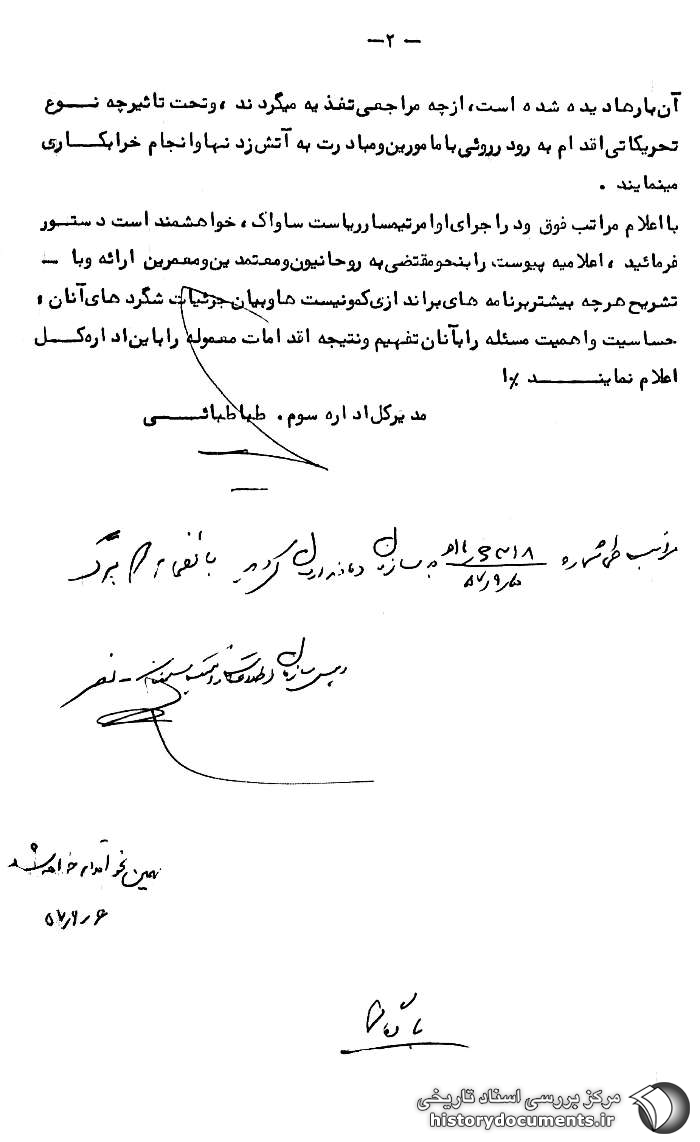 — ۲ —
آن بارها دیده شده است، از چه مراجعی تغذیه میگردند، وتحت تاثیر چه نـــوع
تحریکاتی اقدام به رودرروئی با مامورین ومبادرت به آتش زدنها وانجام خرابکـــاری
مینمایند .
با اعلام مراتب فوق ودر اجرای اوامر تیمسار ریاست ساواک، خواهشمند است دستــور
فرمائید، اعلامیه پیوست را بنحو مقتضی به روحانیون ومعتمدین ومعمرین ارائه وبا ــ
تشریح هرچه بیشتر برنامه های براندازی کمونیست ها وبیان جزئیات شگردهای آنان ،
حساسیت واهمیت مسئله را بآنان تفهیم ونتیجه اقدامات معموله را باین اداره کـــل
اعلام نماینـــــد ٪ا
مدیرکل اداره سوم. طباطبائــــی
مراتب طی شماره
به سازمان
برگ
رئیس سازمان اطلاعات وامنیت
همین نحو اقدام خواهد شد
مرکز بررسی اسناد تاریخی
historydocuments.ir